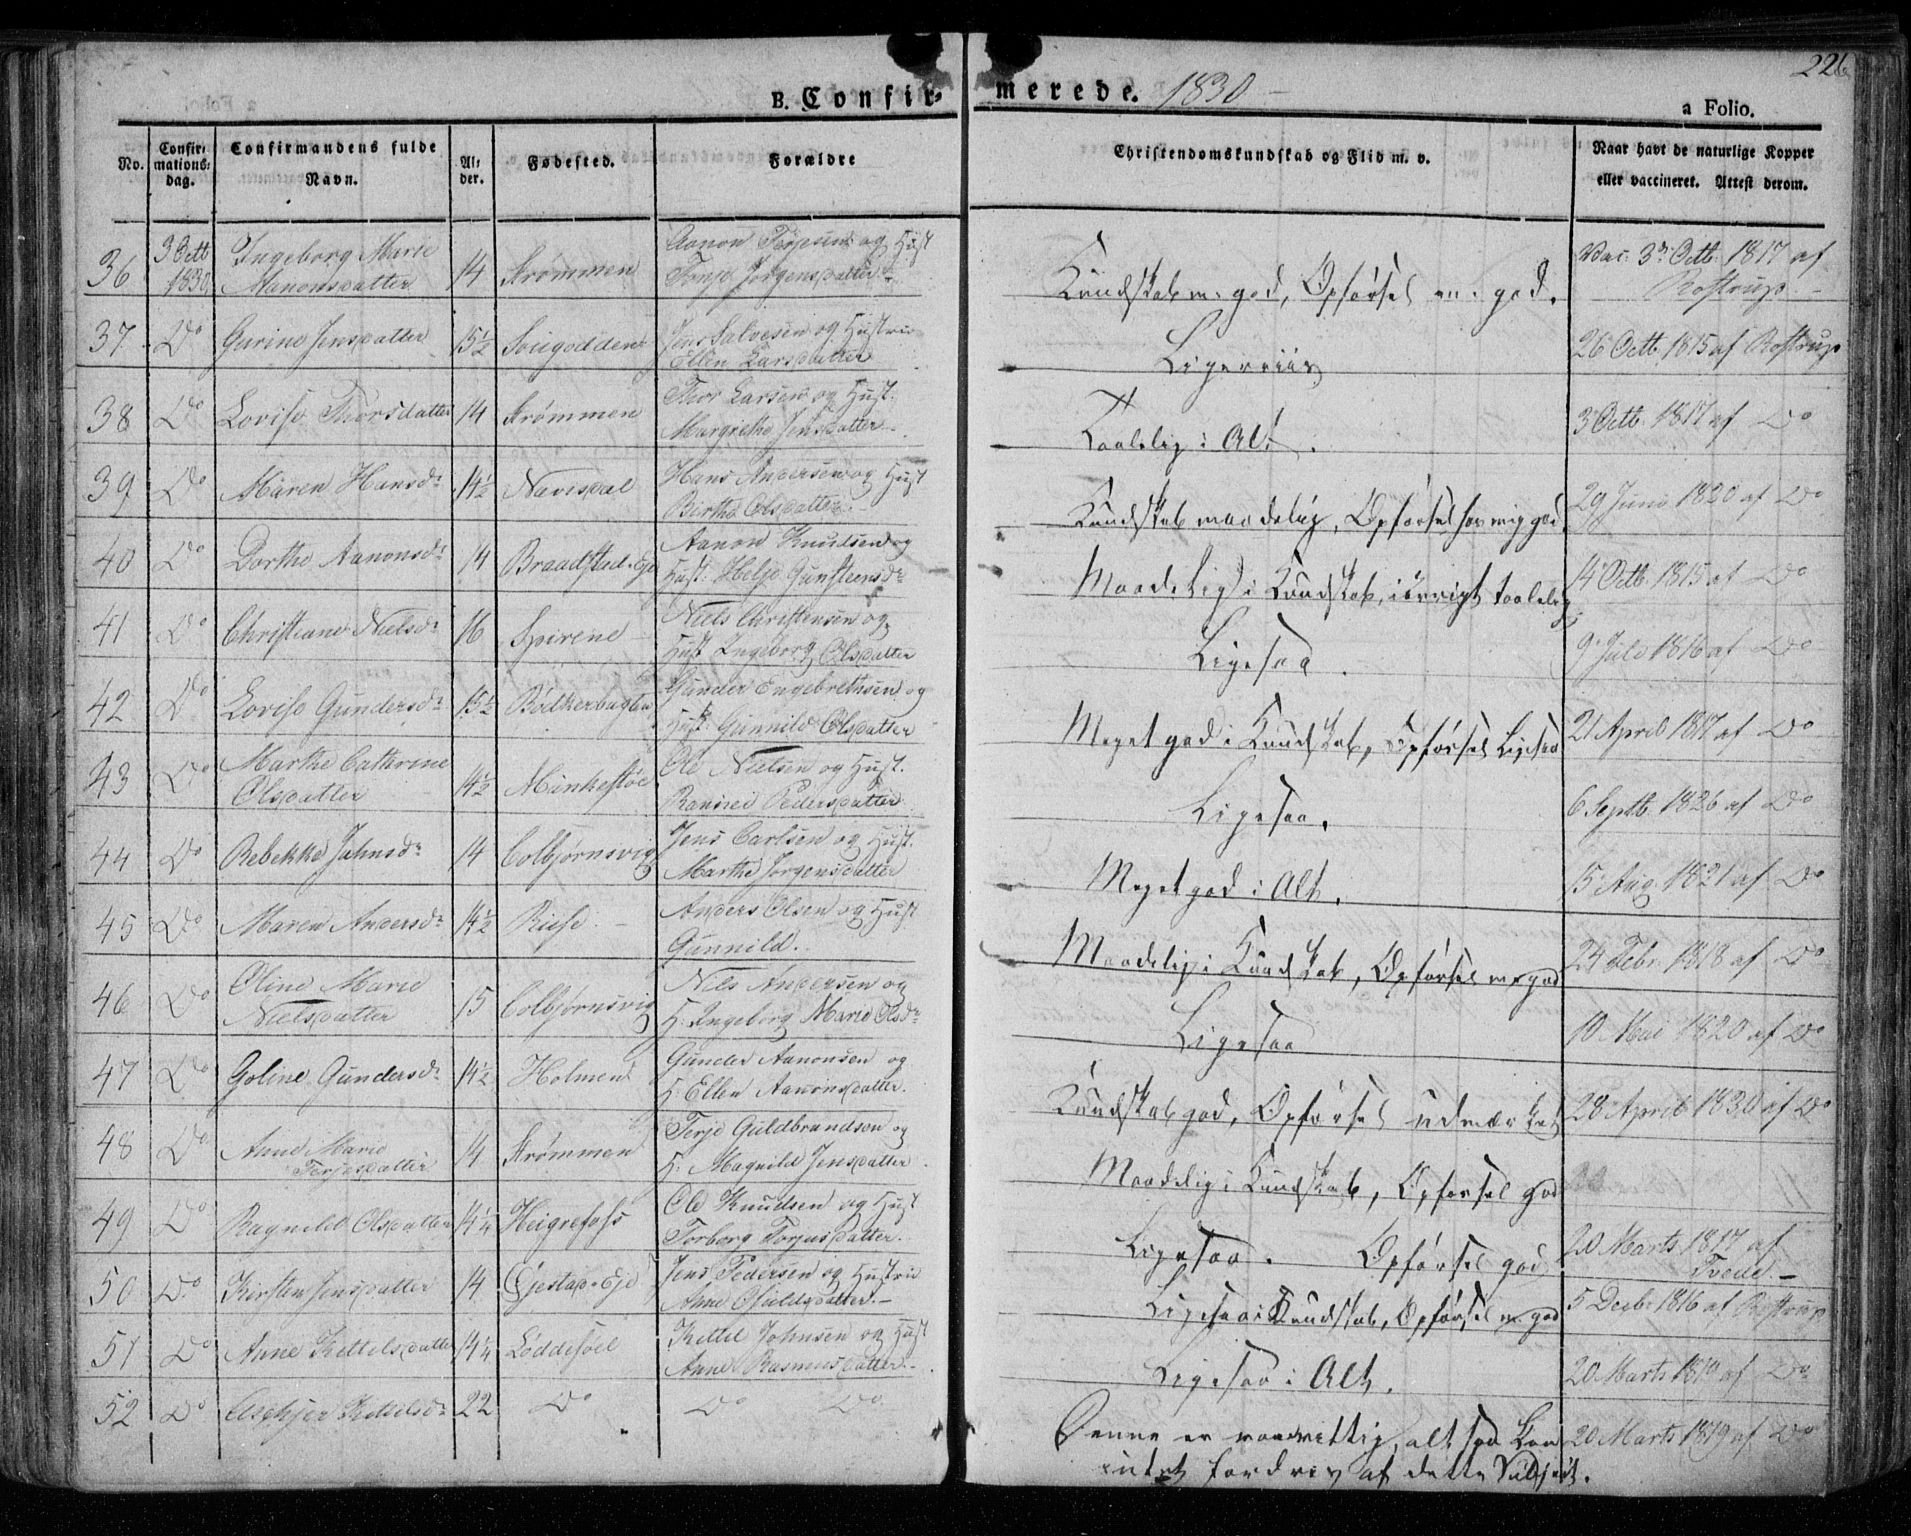 226
B. Confir= merede. 1830 –
a Folio.
No. Confir= mations= dag. Confirmandens fulde Navn. Al= der. Fødested. Forældre Christendomskundskab og Flid m. v. Naar havt de naturlige Kopper eller vaccineret. Attest derom.
36 3 Octb 1830 Ingeborg Marie Aanonsdatter 14 Strømmen Aanon Terjesen og Hust Tonje Jørgensdatter Kundskab m. god, Opførsel m. god. Vac: 3die Octb: 1817 af Rostrup.
37 Do Gurine Jensdatter 15½ Jens Salvesen og Hustrue Ellen Larsdatter Ligerviis 26 Octb. 1815 af Rostrup
38 Do Lovise Thorsdatter 14 Strømmen Thor Larsen og Hust. Margrethe Jensdatter Taalelig i Alt. 3 Octb. 1817 af Do
39 Do Maren Hansdr 14½ Navisdal Hans Andersen og Hust Birthe Olsdatter Kundskab maadelig, Opførsel god 29 Juni 1820 af Do
40 Do Dorthe Aanonsdr 14 Braadstad-Eje Aanon Knudsen og Hust: Helje Gunsteensdr Maadelig i Kundskab, iøvrigt taalelig 14 Octb 1815 af Do
41 Do Christiane Nielsdr 16 Spirene Niels Christensen og Hust Ingeborg Olsdatter Ligesaa. 9 Juli 1816 af Do
42 Do Lovise Gundersdr 15½ Bødkerbugten Gunder Engebrethsen og Hust: Gunnild Olsdatter Meget god i Kundskab, Opførsel Ligesaa 21 April 1817 af Do
43 Do Marthe Cathrine Olsdatter 14½ Munkestøe Ole Nielsen og Hust. Randei Pedersdatter Ligesaa. 6 Septb. 1826 af Do
44 Do Rebekke Jahnsdr 14 Colbjørnsvig Jens Carlsen og Hust. Marthe Jørgensdatter Meget god i Alt. 15 Aug. 1821 af Do
45 Do Maren Andersdr 14½ Riise Anders Olsen og Hust Gunnild. Maadelig i Kundskab, Opførsel m. god 24 Febr. 1818 af Do
46 Do Oline Marie Nielsdatter 15 Colbjørnsvig Niels Andersen og H. Ingeborg Marie Olsdr Ligesaa 10 Mai 1820 af Do
47 Do Goline Gundersdr 14½ Holmen Gunder Aanonsen og H: Ellen Aanonsdatter. Kundskab god, Opførsel udmærket 28 April 1830 af Do
48 Do Anne Marie Terjesdatter 14 Strømmen Terje Guldbrandsen og H: Magnild Jensdatter Maadelig i Kundskab, Opførsel god
49 Do Ragnild Olsdatter 14¼ Heigrefos Ole Knudsen og Hust Torborg Torjusdatter. Ligesaa. Opførsel god 20 Marts 1817 af Tvede. –
50 Do Kirsten Jensdatter 14 Gjestad-Eje Jens Pedersen og Hustrue Anne Ligesaa i Kundskab, Opførsel m. god 5 Decbr 1816 af Rostrup
51 Do Anne Kettelsdatter 14¼ Løddesøel Kettel Johnsen og Hust Anne Rasmusdatter. Ligesaa i Alt. 20 Marts 1819 af Do
52 Do Kettelsdr 22 Do Do Do Denne er vanvittig, alt saa kan intet fordres af dette Subject. 20 Marts 1819 af Do